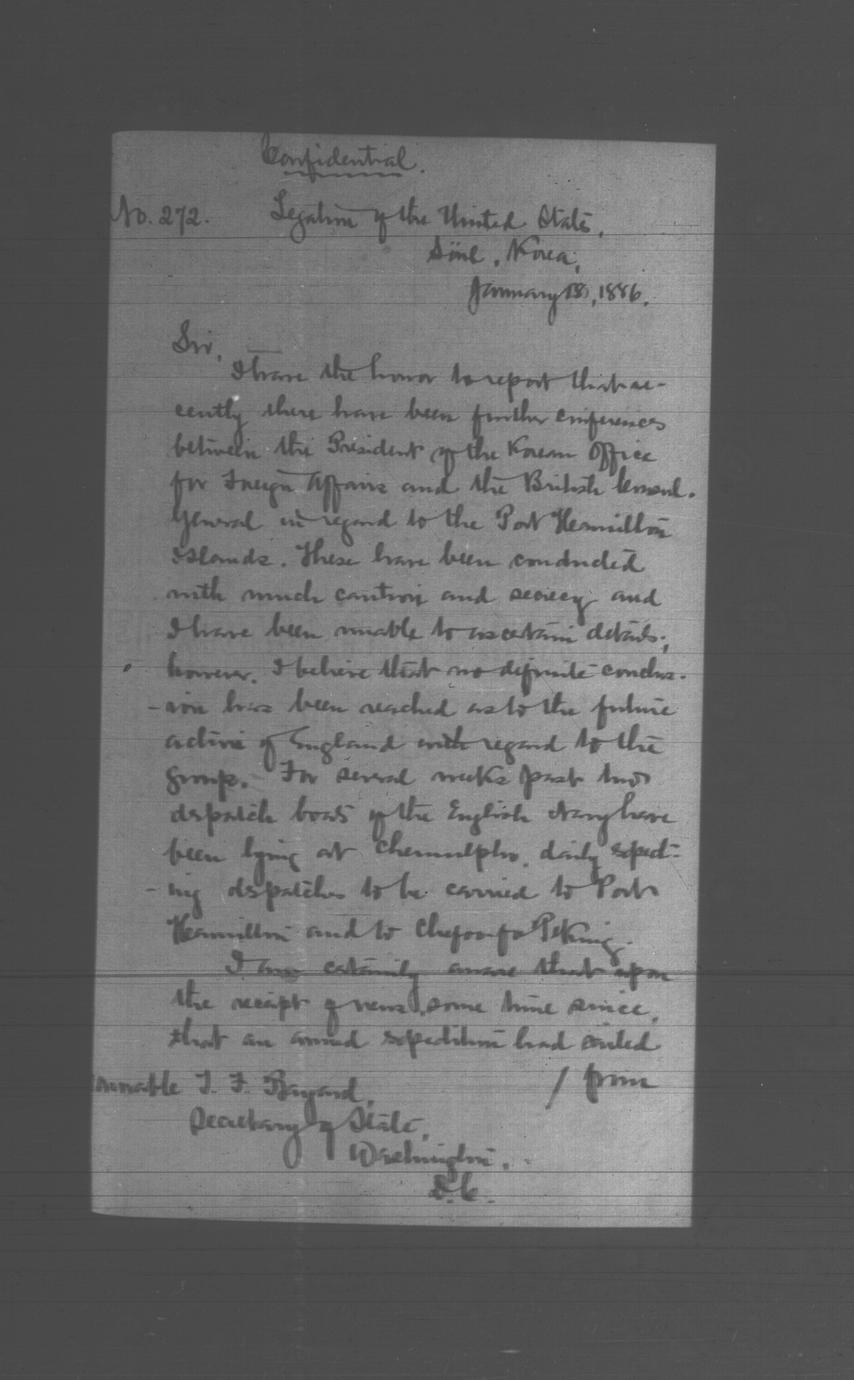 Confidential.
No. 272. Legation of the United States,
Söul, Korea,
January 18, 1886.
Sir,
I have the honor to report that re-
cently there have been further conferences
between the President of the Korean Office
for Foreign Affairs and the British Consul-
General in regard to the Port Hamilton
Islands. These have been conducted
with much caution and secrecy and
I have been unable to ascertain details;
however, I believe that no definite conclu-
-sion has been reached as to the future
action of England with regard to the
group. – For several weeks past two
dispatch boats of the English Navy have
been lying at Chemulpho, daily expect-
-ing dispatches to be carried to Port
Hamilton and to Chefoo for Peking.
I am certainly aware that upon
the receipt of news, some time since,
that an armed expedition had sailed
/ from
Honorable T. F. Bayard,
Secretary of State,
Washington,
D.C.